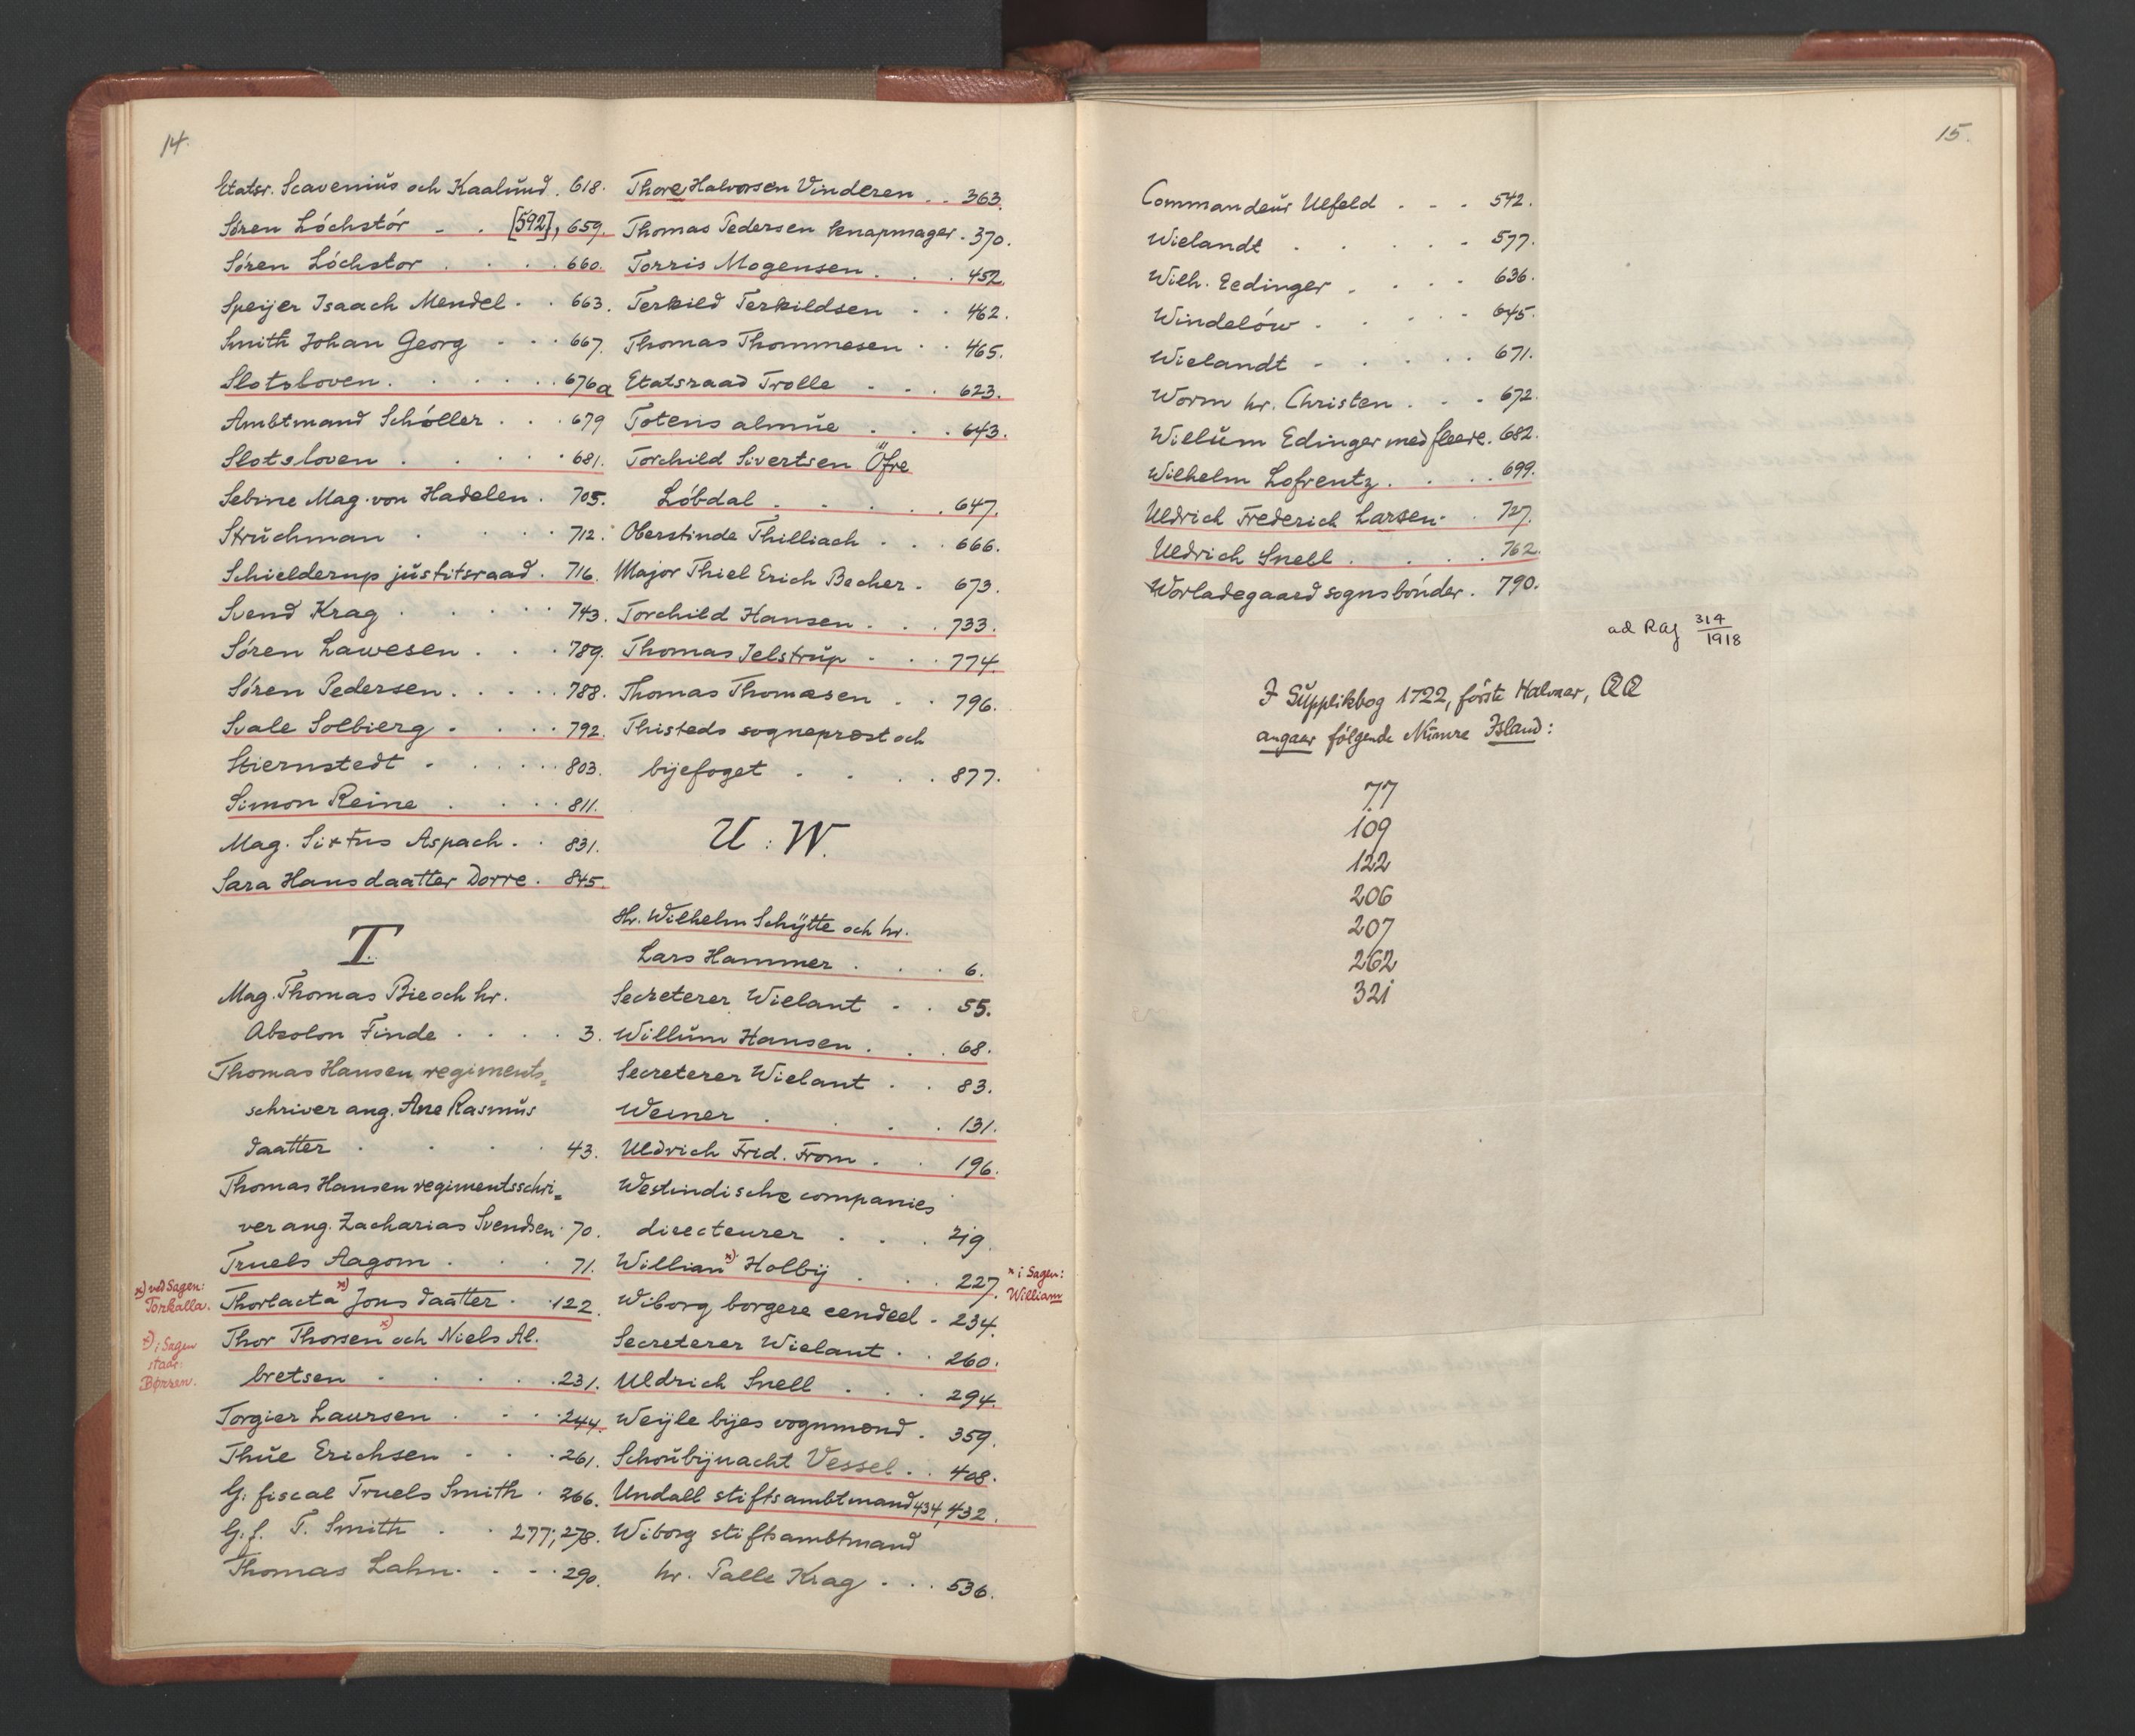 14.
Etatsr. Scavenius och Kaalund . 618.
Sören Löchstör . . [592], 659.
Sören Löchstor . . . . 660.
Speijer Isaach Mendel . . 663.
Smith Johan Georg . . . 667.
Slotsloven . . . . . . 676a
Ambtmand Schöller . . . 679
Slotsloven . . . . . 681.
Sebine Mag. von Hadelen . 705.
Struchman . . . . . 712.
Schielderup justitsraad . 716.
Svend Krag . . . . . 743.
Sören Lawesen . . . 789.
Sören Pedersen . . . . . 788.
Svale Solbierg . . . . 792.
Stiernstedt . . . . . 803.
Simon Reine . . . . 811.
Mag. Sixtus Aspach . . 831.
Sara Hansdaatter Dorre . 845.
T.
Mag. Thomas Bie och hr.
Absolon Finde . . . . 3.
Thomas Hansen regiments=
schriver ang. Ane Rasmus
daatter . . . . 43.
Thomas Hansen regimentsschri=
ver ang. Zacharias Svendsen . 70.
Truels Aagom . . . 71.
x) ved Sagen:
Torkalla.
Thorlacta x) Jons daatter . . 122.
Thor Thorsen x) och Niels Al.
x) i Sagen
staar:
Børren.
bretsen . . . . . 231.
Torgier Laursen . . . . 244.
Thue Erichsen . . . 261.
G. fiscal Truels Smith . 266.
G. f. T. Smith . . 277; 278.
Thomas Lahn . . . . 290.
Thore Halvorsen Vinderen . . 363.
Thomas Pedersen knapmager . 370.
Torris Mogensen . . . 452.
Terkild Terkildsen . . 462.
Thomas Thommesen . . 465.
Etatsraad Trolle . . . 623.
Totens almue . . . 643.
Torchild Sivertsen Öfre
Löbdal . . . . . 647.
Oberstinde Thilliach . . . 666.
Major Thiel Erich Becher . 673.
Torchild Hansen . . . 733.
Thomas Jelstrup . . . 774.
Thomas Thomæsen . . 796.
Thisteds sogneprest och
bijefoget . . . . 877.
U : W.
Hr. Wilhelm Schÿtte och hr.
Lars Hammer . . . 6.
Secreterer Wielant . . 55.
Willum Hansen . . . 68.
Secreterer Wielant . . 83.
Werner . . . . 131.
Uldrich Frid. From . . 196.
Westindische companies
directeurer . . . 219.
Willian x) Holbij . . . 227.
x i Sagen:
William
Wiborg borgere eendeel . 234.
Secreterer Wielant . . 260.
Uldrich Snell . . . 294.
Weijle bijes vognmend . 359.
Schoubijnacht Vessel . . 408.
Undall stiftsambtmand 434, 432.
Wiborg stiftsambtmand
hr. Palle Krag . . . 536.
15.
Commandeur Ulfeld . . . 542.
Wielandt . . . . . 577.
Wilh. Eedinger . . . . 636.
Windelöw . . . . . 645.
Wielandt . . . . . 671.
Worm hr. Christen . . . 672.
Wielum Edinger med fleere . 682.
Wilhelm Lofrentz . . . . 699.
Uldrich Frederich Larsen . . 727.
Uldrich Snell . . . . 762.
Worladegaard sognsbönder . 790.
ad RAJ 314/1918
I Supplikbog 1722, förste Halvaar, QQ
angaar fölgende Numre Island:
77
109
122
206
207
262
321